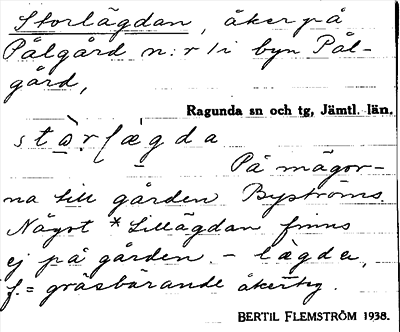 Storlägdan, åker på
Pålgård n:r 1 i byn Pål-
gård,
Ragunda sn och tg, Jämtl. län.
stɑ̀rlæ̀gda
På mägor-
na till gården Byströms.
Något *Lillägdan finns
ej på gården. – lägda,
f. = gräsbärande åkerteg.
BERTIL FLEMSTRÖM 1938.